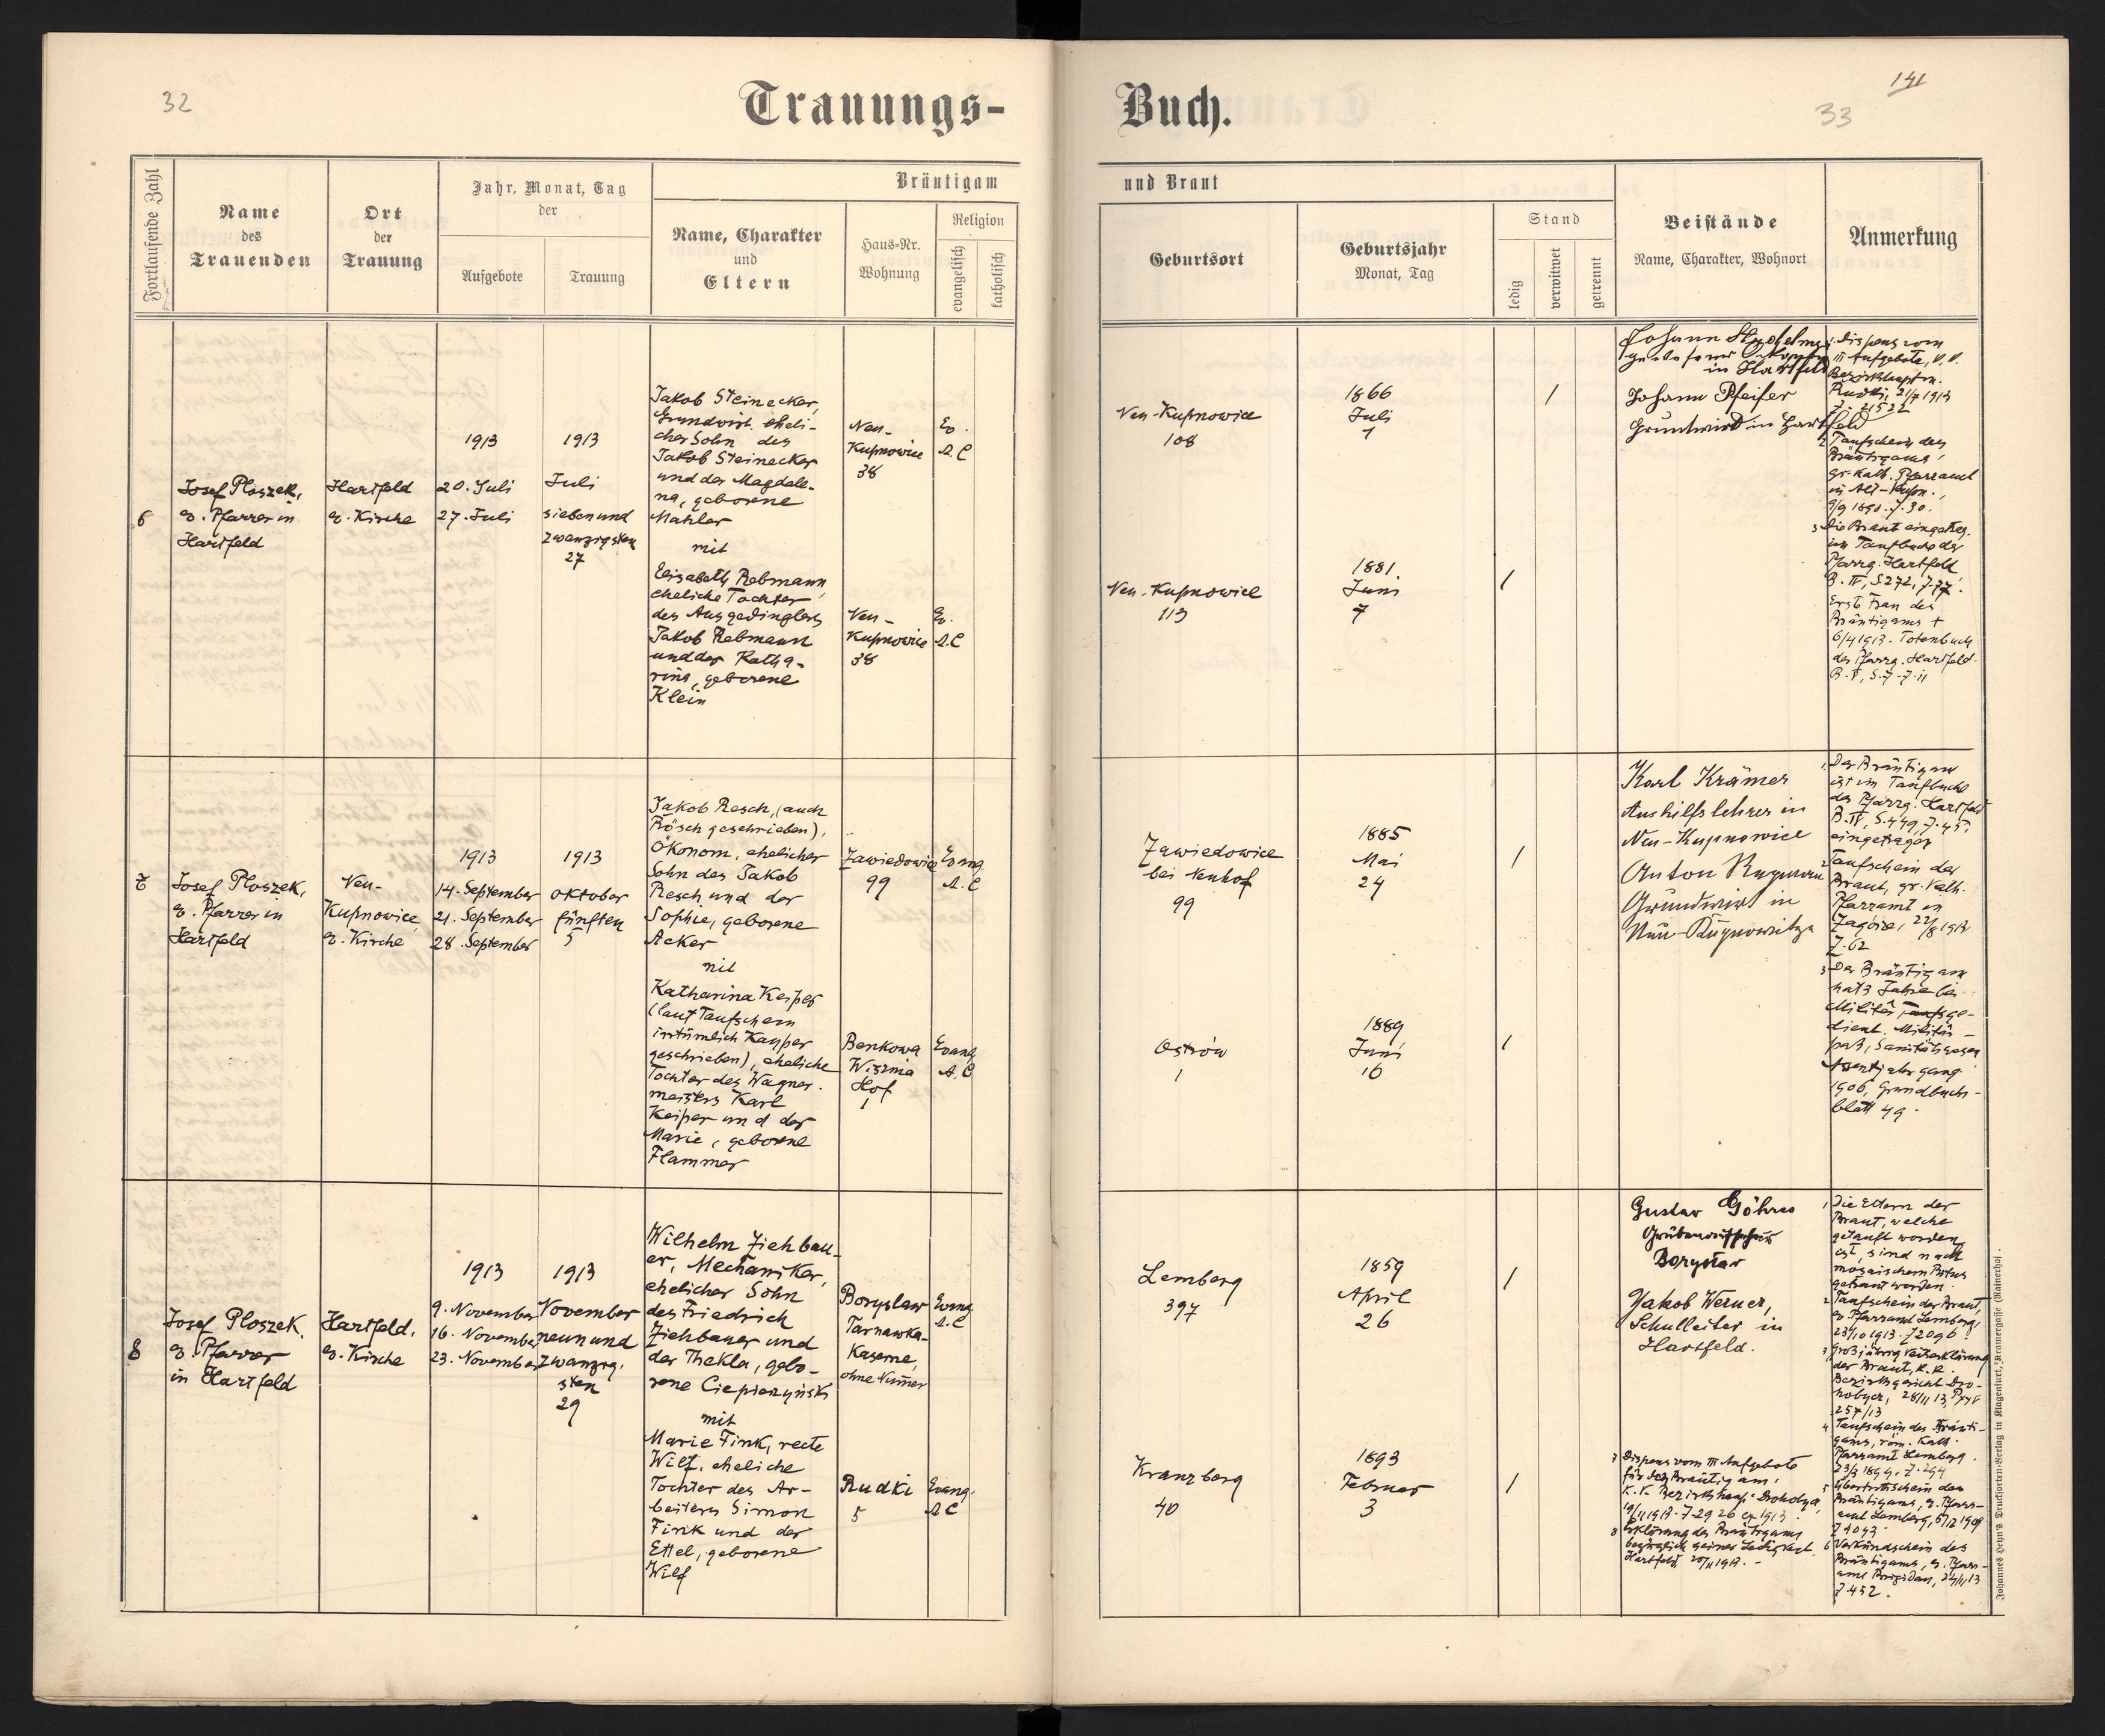 32
Trauungs-
Buch.
141
33
Fortlaufende Zahl
Name
des
Trauenden
Ort
der
Trauung
Jahr, Monat, Tag
der
Aufgebote
Trauung
Bräutigam
Name, Charakter
und
Eltern
Haus-Nr.
Wohnung
Religion
evangelisch
katholisch
und Braut
Geburtsort
Geburtsjahr
Monat, Tag
Stand
ledig
verwitwet
getrennt
Beistände
Name, Charakter, Wohnort
Anmerkung
6
Josef Ploszek,
ev. Pfarrer in
Hartfeld
Hartfeld
ev. Kirche
1913
20. Juli
27. Juli
1913
Juli
sieben und
zwanzigsten
27
Jakob Steinecker,
Grundwirt, eheli-
cher Sohn des
Jakob Steinecker
und der Magdale-
na, geborene
Mahler
mit
Elisabeth Rebmann,
eheliche Tochter
des Ausgedinglers
Jakob Rebmann
und der Katha-
rina, geborene
Klein
Neu-
Kupnowice
38
Ev.
A.C
Neu-
Kupnowice
38
Ev.
A.C
Neu-Kupnowice
108
1866
Juli
1
/
Neu-Kupnowice
113
1881
Juni
7
/
Johann
in Hartfeld
Johann Pfeifer
Grundwirt in Hartfeld
1. Dispens vom
III Aufgebote, K.K.
Bezirkshauptm.
Rudki, 21/7 1913
Z. 21522
2 Taufschein des
Bräutigams,
gr. kath. Pfarramt
in Alt-Kupn.,
9/9 1890. Z. 30.
3 Die Braut eingetrag.
im Taufbuch der
Pfarrg. Hartfeld
B. IV, S. 272, Z. 77.
Erste Frau des
Bräutigams †
6/4 1913. Totenbuch
der Pfarrg. Hartfeld.
B. V, S. 7. Z. 11
7
Josef Ploszek,
ev. Pfarrer in
Hartfeld
Neu-
Kupnowice,
ev. Kirche
1913
14. September
21. September
28. September
1913
Oktober
fünften
5
Jakob Resch, (auch
Rösch geschrieben),
Ökonom, ehelicher
Sohn des Jakob
Resch und der
Sophie, geborene
Acker
mit
Katharina Keiper
(laut Taufschein
irrtümlich Kayper
geschrieben), eheliche
Tochter des Wagner-
meisters Karl
Keiper und der
Marie, geborene
Flammer
Zawiedowice
99
Evang
A.C
Benkowa
Wisznia
Hof
1
Evang
A.C
Zawiedowice
bei Neuhof
99
1885
Mai
24
/
Ostrów
1
1889
Juni
16
/
Karl Krämer
Aushilfslehrer in
Neu-Kupnowice
Anton
Grundwirt in
1. Der Bräutigam
ist im Taufbuche
der Pfarrg. Hartfeld
B. IV, S. 449, Z. 45.
eingetragen
2 Taufschein der
Braut, gr. kath.
Pfarramt in
Zagórze, 22/8 1913
Z. 62
3 Der Bräutigam
hat 3 Jahre bei
Militär ge-
dient. Militär-
paß, Sanitätswesen
Assentjahrgang
1906, Grundbuchs-
blatt 49.
8
Josef Ploszek,
ev. Pfarrer
in Hartfeld
Hartfeld,
ev. Kirche
1913
9. November
16. November
23. November
1913
November
neun und
zwanzig-
sten
29
Wilhelm Ziehbau-
er, Mechaniker,
ehelicher Sohn
des Friedrich
Ziehbauer und
der Thekla, gebo-
rene Ciepierzyński
mit
Marie Fink, recte
Wilf, eheliche
Tochter des Ar-
beiters Simon
Fink und der
Ettel, geborene
Wilf
Boryslaw
Tarnawka-
Kaserne,
ohne Numer
Evang
A.C
Rudki
5
Evang.
A C
Lemberg
397
1859
April
26
/
Kranzberg
40
1893
Februar
3
/
Gustav
Boryslaw
Jakob Werner,
Schulleiter in
Hartfeld.
7 Dispens vom III Aufgebote
für den Bräutigam,
K.K. Bezirkshaupt. Drohobycz,
19/11 1913. Z. 2926 ex 1913.
8 Erklärung des Bräutigams
bezüglich seiner Ledigkeit.
Hartfeld 20/11 1913. -
1 Die Eltern der
Braut, welche
getauft worden
ist, sind nach
mosaischem Ritus
getraut worden.
2 Taufschein der Braut,
ev. Pfarramt Lemberg,
23/10 1913. Z 2096.
3 Großjährigkeitserklärung
der Braut, K.K.
Bezirksgericht Dro-
hobycz, 28/11 13,
257/13
4 Taufschein des Bräuti-
gams, röm. kath.
Pfarramt Lemberg.
23/3 1899. Z. 294
5 Übertrittschein des
Bräutigams, ev. Pfarr-
amt Lemberg, 5/12 1909
Z 1093
6 Verkündschein des
Bräutigams, ev. Pfarr-
amt Brigidau, 24/11 13
Z 452.
Johannes Heyn's Drucksorten-Verlag in Klagenfurt, Kramergasse (Rainerhof).